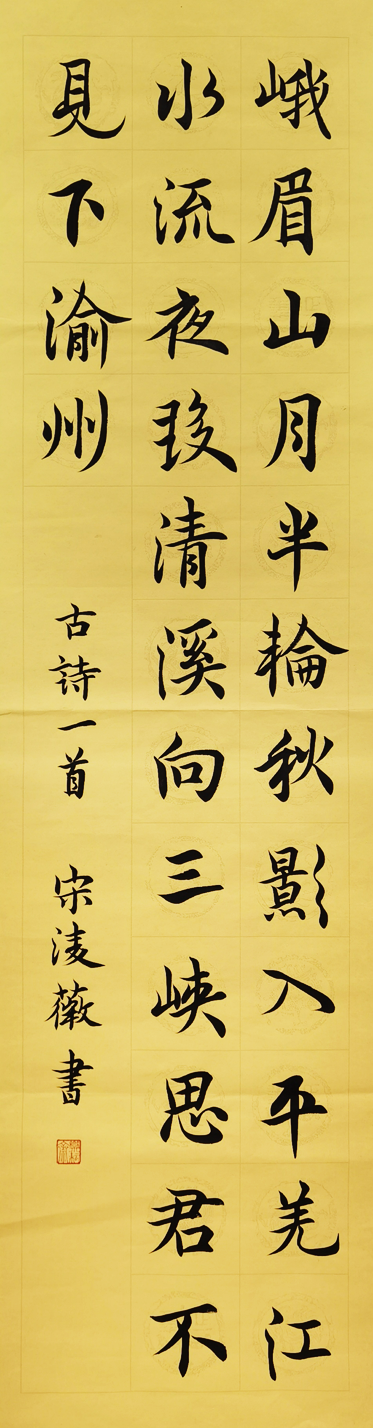 峨眉山月半輪秋影入平羌江
水流夜發清溪向三峽思君不
見下渝州
古詩一首 宋淩薇書